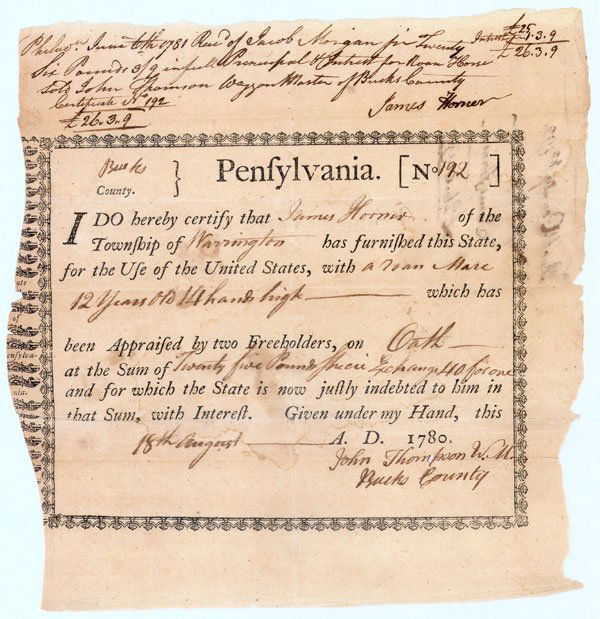 Philada. June 6th 1781 Recd of Jacob Morgan jur Twenty
Six Pounds 3/9 in full Principal & Intrest for Roan Horse
Sold John Thomson Waggon Master of Bucks County
£25
Intrest 1.3.9
£26.3.9
Certificate No 192
£26.3.9
James Horner
Bucks
County.
Penſylvania. [No 192 ]
I DO hereby certify that James Horner of the
Townſhip of Warrington has furniſhed this State,
for the Uſe of the United States, with a roan Mare
12 Years Old 14 hands high which has
been Appraiſed by two Freeholders, on Oath
at the Sum of Twenty five Pounds Specie Exchange 40 for one
and for which the State is now juſtly indebted to him in
that Sum, with Intereſt. Given under my Hand, this
18th August A. D. 1780.
John Thompson W. M.
Bucks County